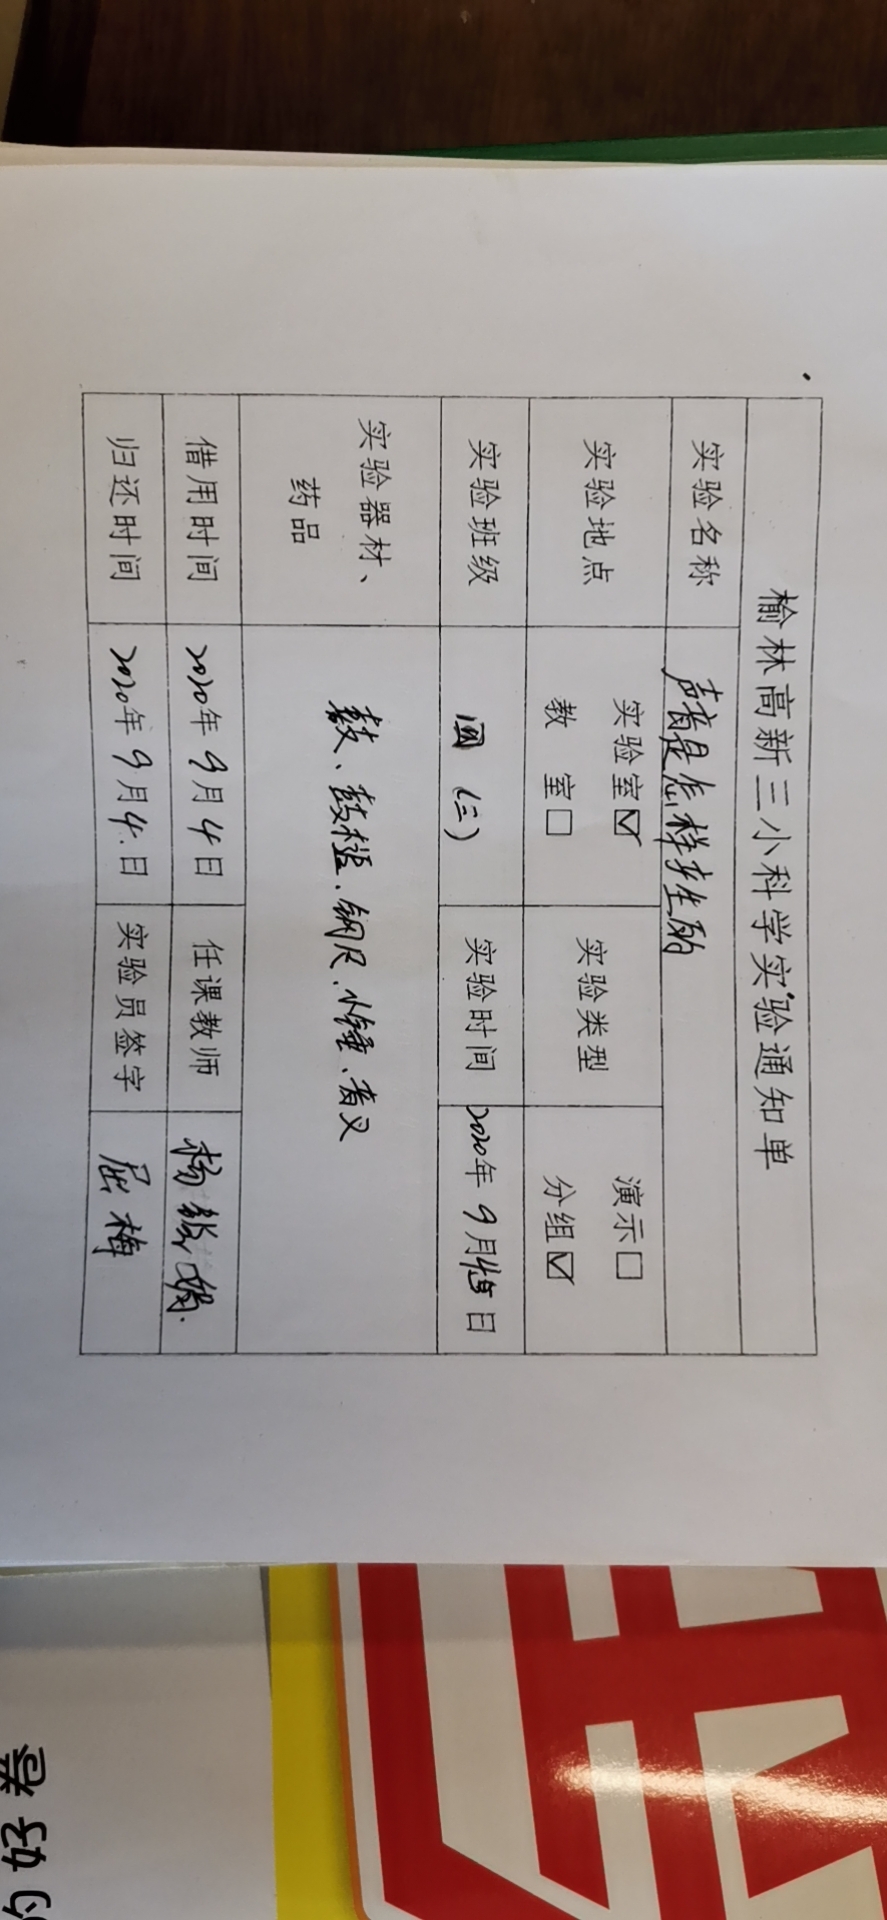 榆林高新三小科学实验通知单
实验名称 声音是怎样产生的
实验地点 实验室☑ 教 室☐ 实验类型 演示☐ 分组☑
实验班级 四(三) 实验时间 2020年9月 日
实验器材、药品 鼓、鼓槌、钢尺、小锤、音叉
借用时间 2020年9月4日 任课教师 杨
归还时间 2020年9月4.日 实验员签字 屈梅
的好卷